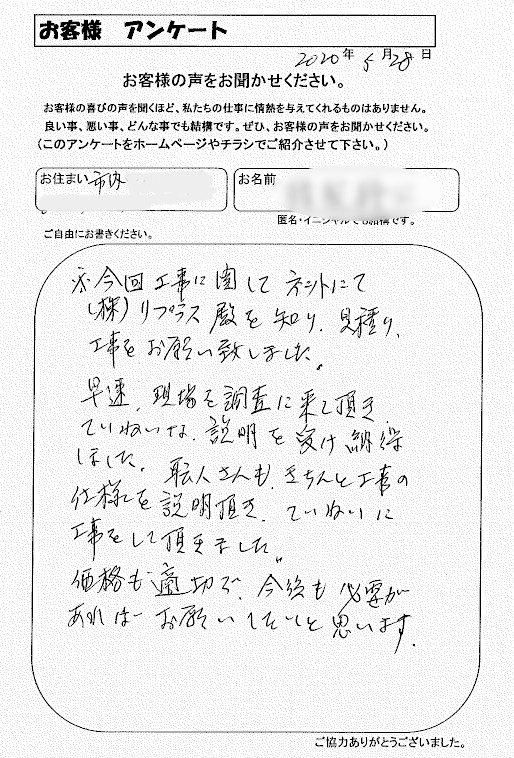 お客様 アンケート
2020年 5月28日
お客様の声をお聞かせください。
お客様の喜びの声を聞くほど、私たちの仕事に情熱を与えてくれるものはありません。
良い事、悪い事、どんな事でも結構です。ぜひ、お客様の声をお聞かせください。
(このアンケートをホームページやチラシでご紹介させて下さい。)
お住まい 市内
お名前
匿名・イニシャルでも結構です。
ご自由にお書きください。
※今回工事に関して ネットにて
(株)リプラス殿を知り、見積り、
工事をお願い致しました。
早速、現場を調査に来て頂き、
ていねいな、説明を受け納得
しました。職人さんも、きちんと工事の
仕様を説明頂き、ていねいに
工事をして頂きました。
価格も適切で、今後も必要が
あれば お願いしたいと思います。
ご協力ありがとうございました。